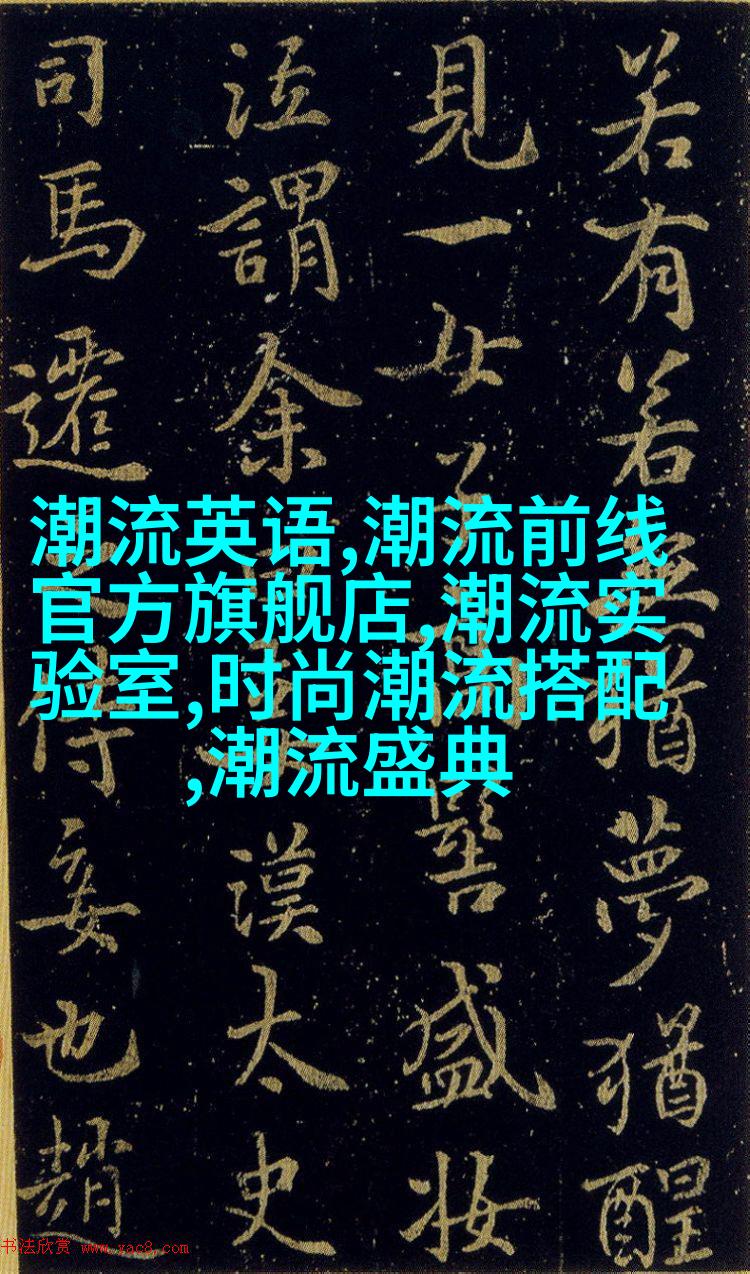 潮流英语,潮流前线
官方旗舰店,潮流实
验室,时尚潮流搭配
,潮流盛典
若有若無猶夢猶醒
見一女子髻盛妝
泣謂余漢太史
司馬遷之侍妾也趙
书法欣赏 www.yac8.com